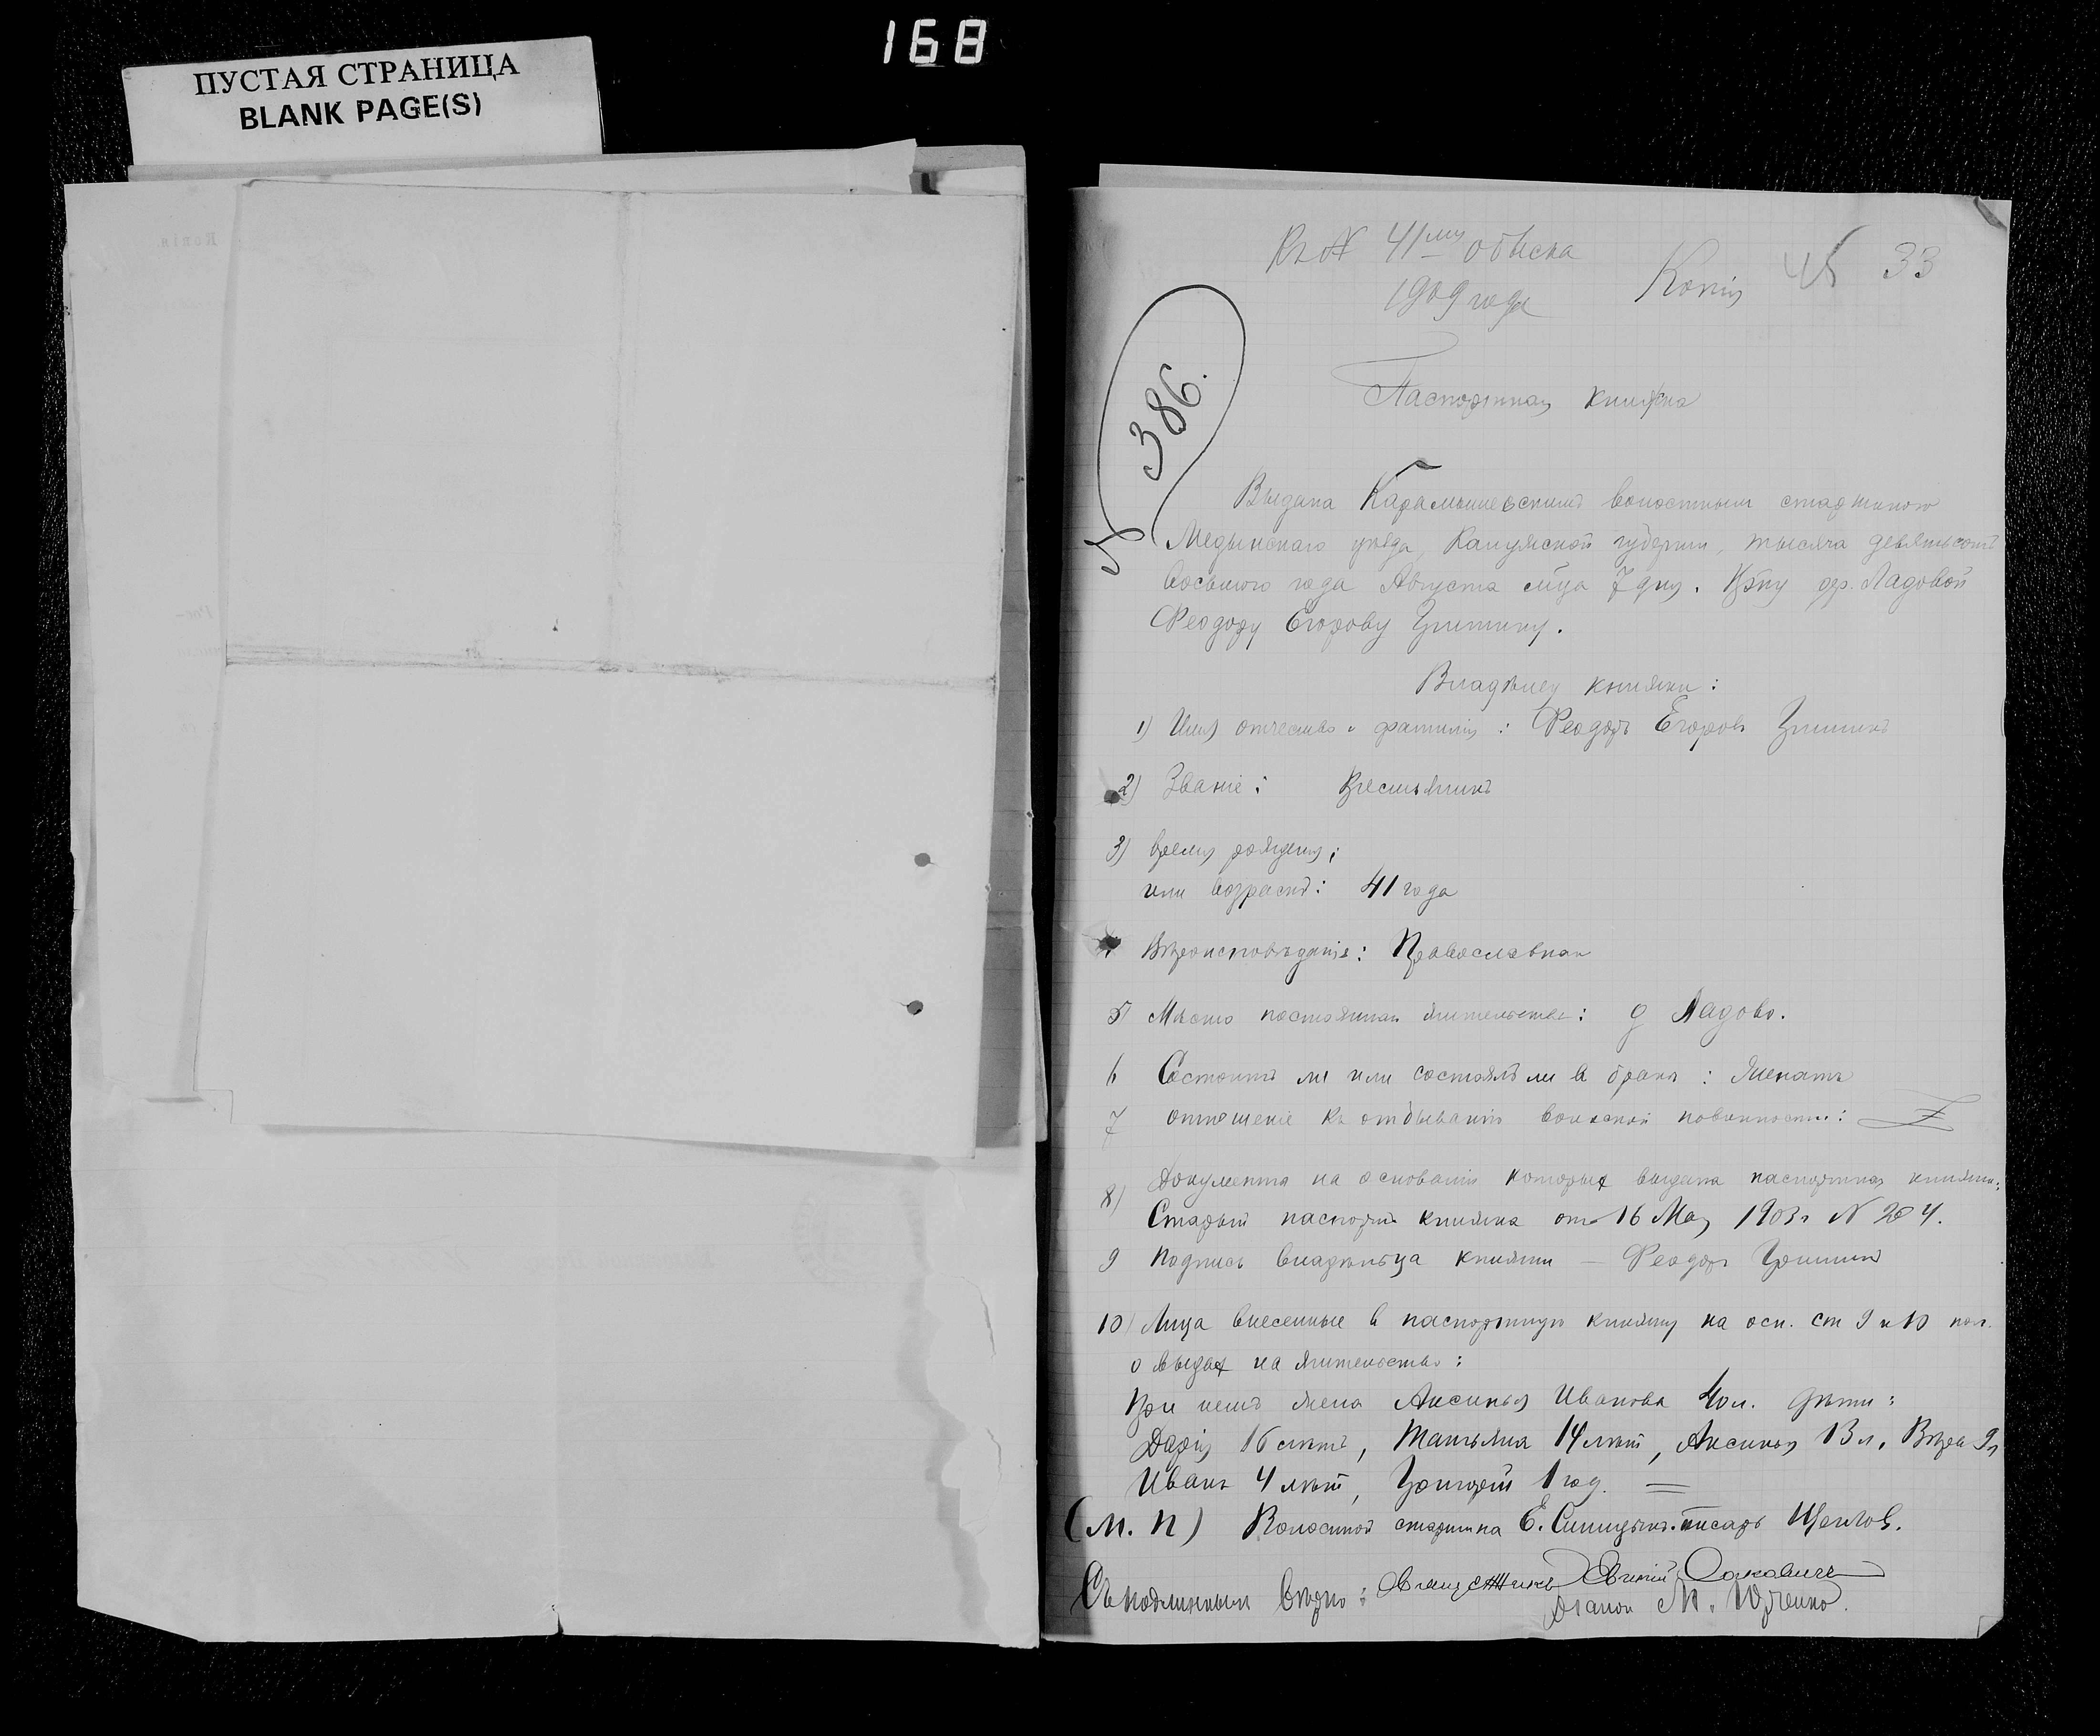 168
ПУСТАЯ СТРАНИЦА
BLANK PAGE(S)
Къ № 41му обыска
1909 года
Копія 45 33
№ 386.
Паспортная книжка
Выдана Карамышевскимъ волостнымъ старшиною
Медынскаго уѣзда, Калужской губерніи, тысяча девятьсотъ
восьмого года Августа м-ца 7 дня. Кр-ну дер. Ладовой
Феодору Егорову Гришину.
Владѣлец книжки:
1) Имя отчество и фамилія: Феодоръ Егоровъ Гришинъ
2) Званіе: Крестьянинъ
3) время рожденія;
или возрастъ: 41 года
Вѣроисповѣданіе: Православнаго
5 Мѣсто постоянная жительства: д Ладово.
6 Состоитъ ли или состоялъ ли в бракѣ: Женатъ
7 отношеніе къ отбыванію воинской повинности:
8) Документа на основаніи которых выдана паспортная книжка:
Старый паспорт. книжка от 16 Мая 1903 г № 204.
9 Подпись владѣльца книжки — Феодоръ Гришинъ
10) Лица внесенные в паспортную книжку на осн. ст 9 и 10 пол.
о видах на жительство:
При немъ жена Аксинья Иванова 40 л. дѣти:
Дарія 16 лѣтъ, Татьяна 14 лѣт, Аксинья 13 л, Вѣра 9 л
Иванъ 4 лѣт, Григорій 1 год.
(М. П) Волостной старшина Е. Синицынъ. писарь Щеглов.
Съ подлиннымъ вѣрно: Священникъ Евгеній
Діакон М. Юрченко.